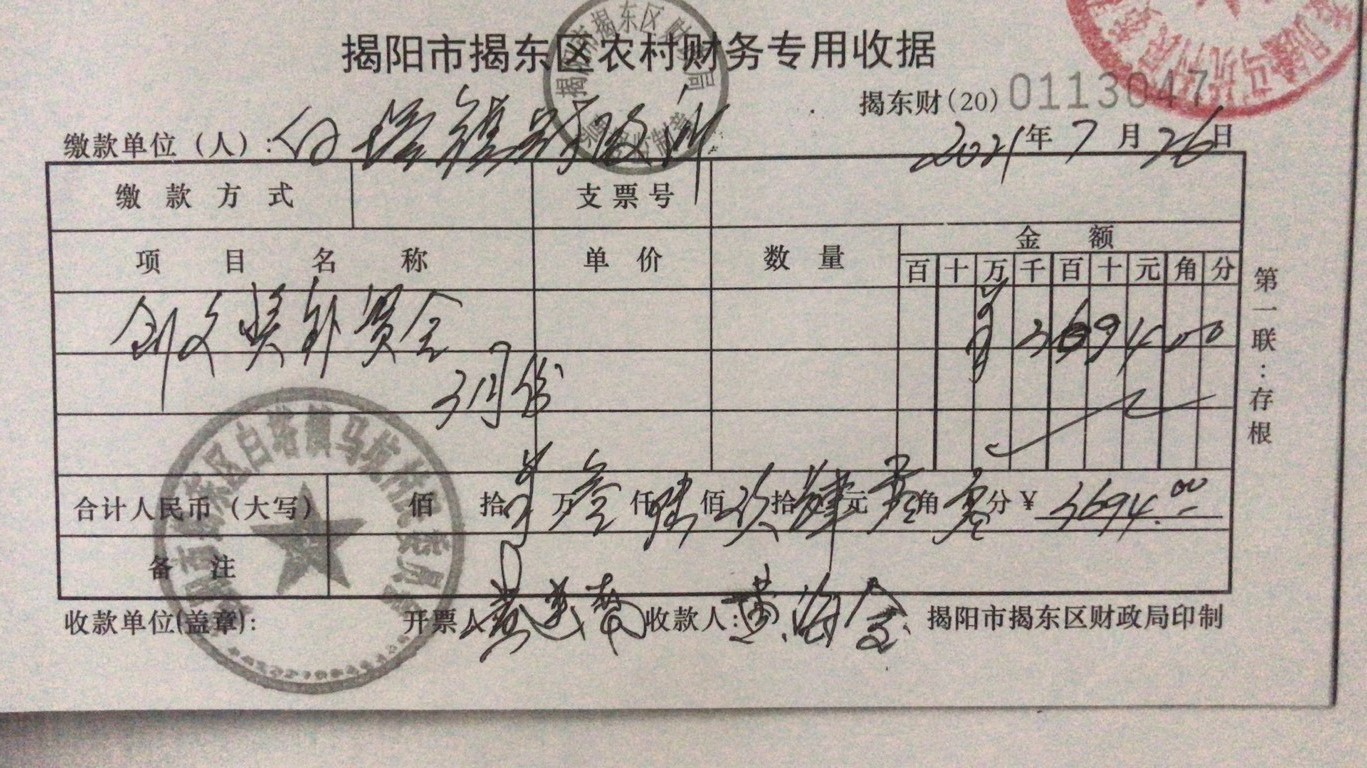 揭阳市揭东区农村财务专用收据
揭东财(20) 0113047
缴款单位（人）：白塔镇财政所 2021年7月26日
缴款方式 支票号
项目名称 单价 数量 金额
百十万千百十元角分
创文奖补资金 3694.00
3月份
合计人民币（大写） 佰 拾 万叁仟陆佰玖拾肆元零角零分 ￥3694.00
备注
收款单位(盖章): 开票人 收款人: 黄海金 揭阳市揭东区财政局印制
第一联：存根
揭东区白塔镇马坑村民委员会